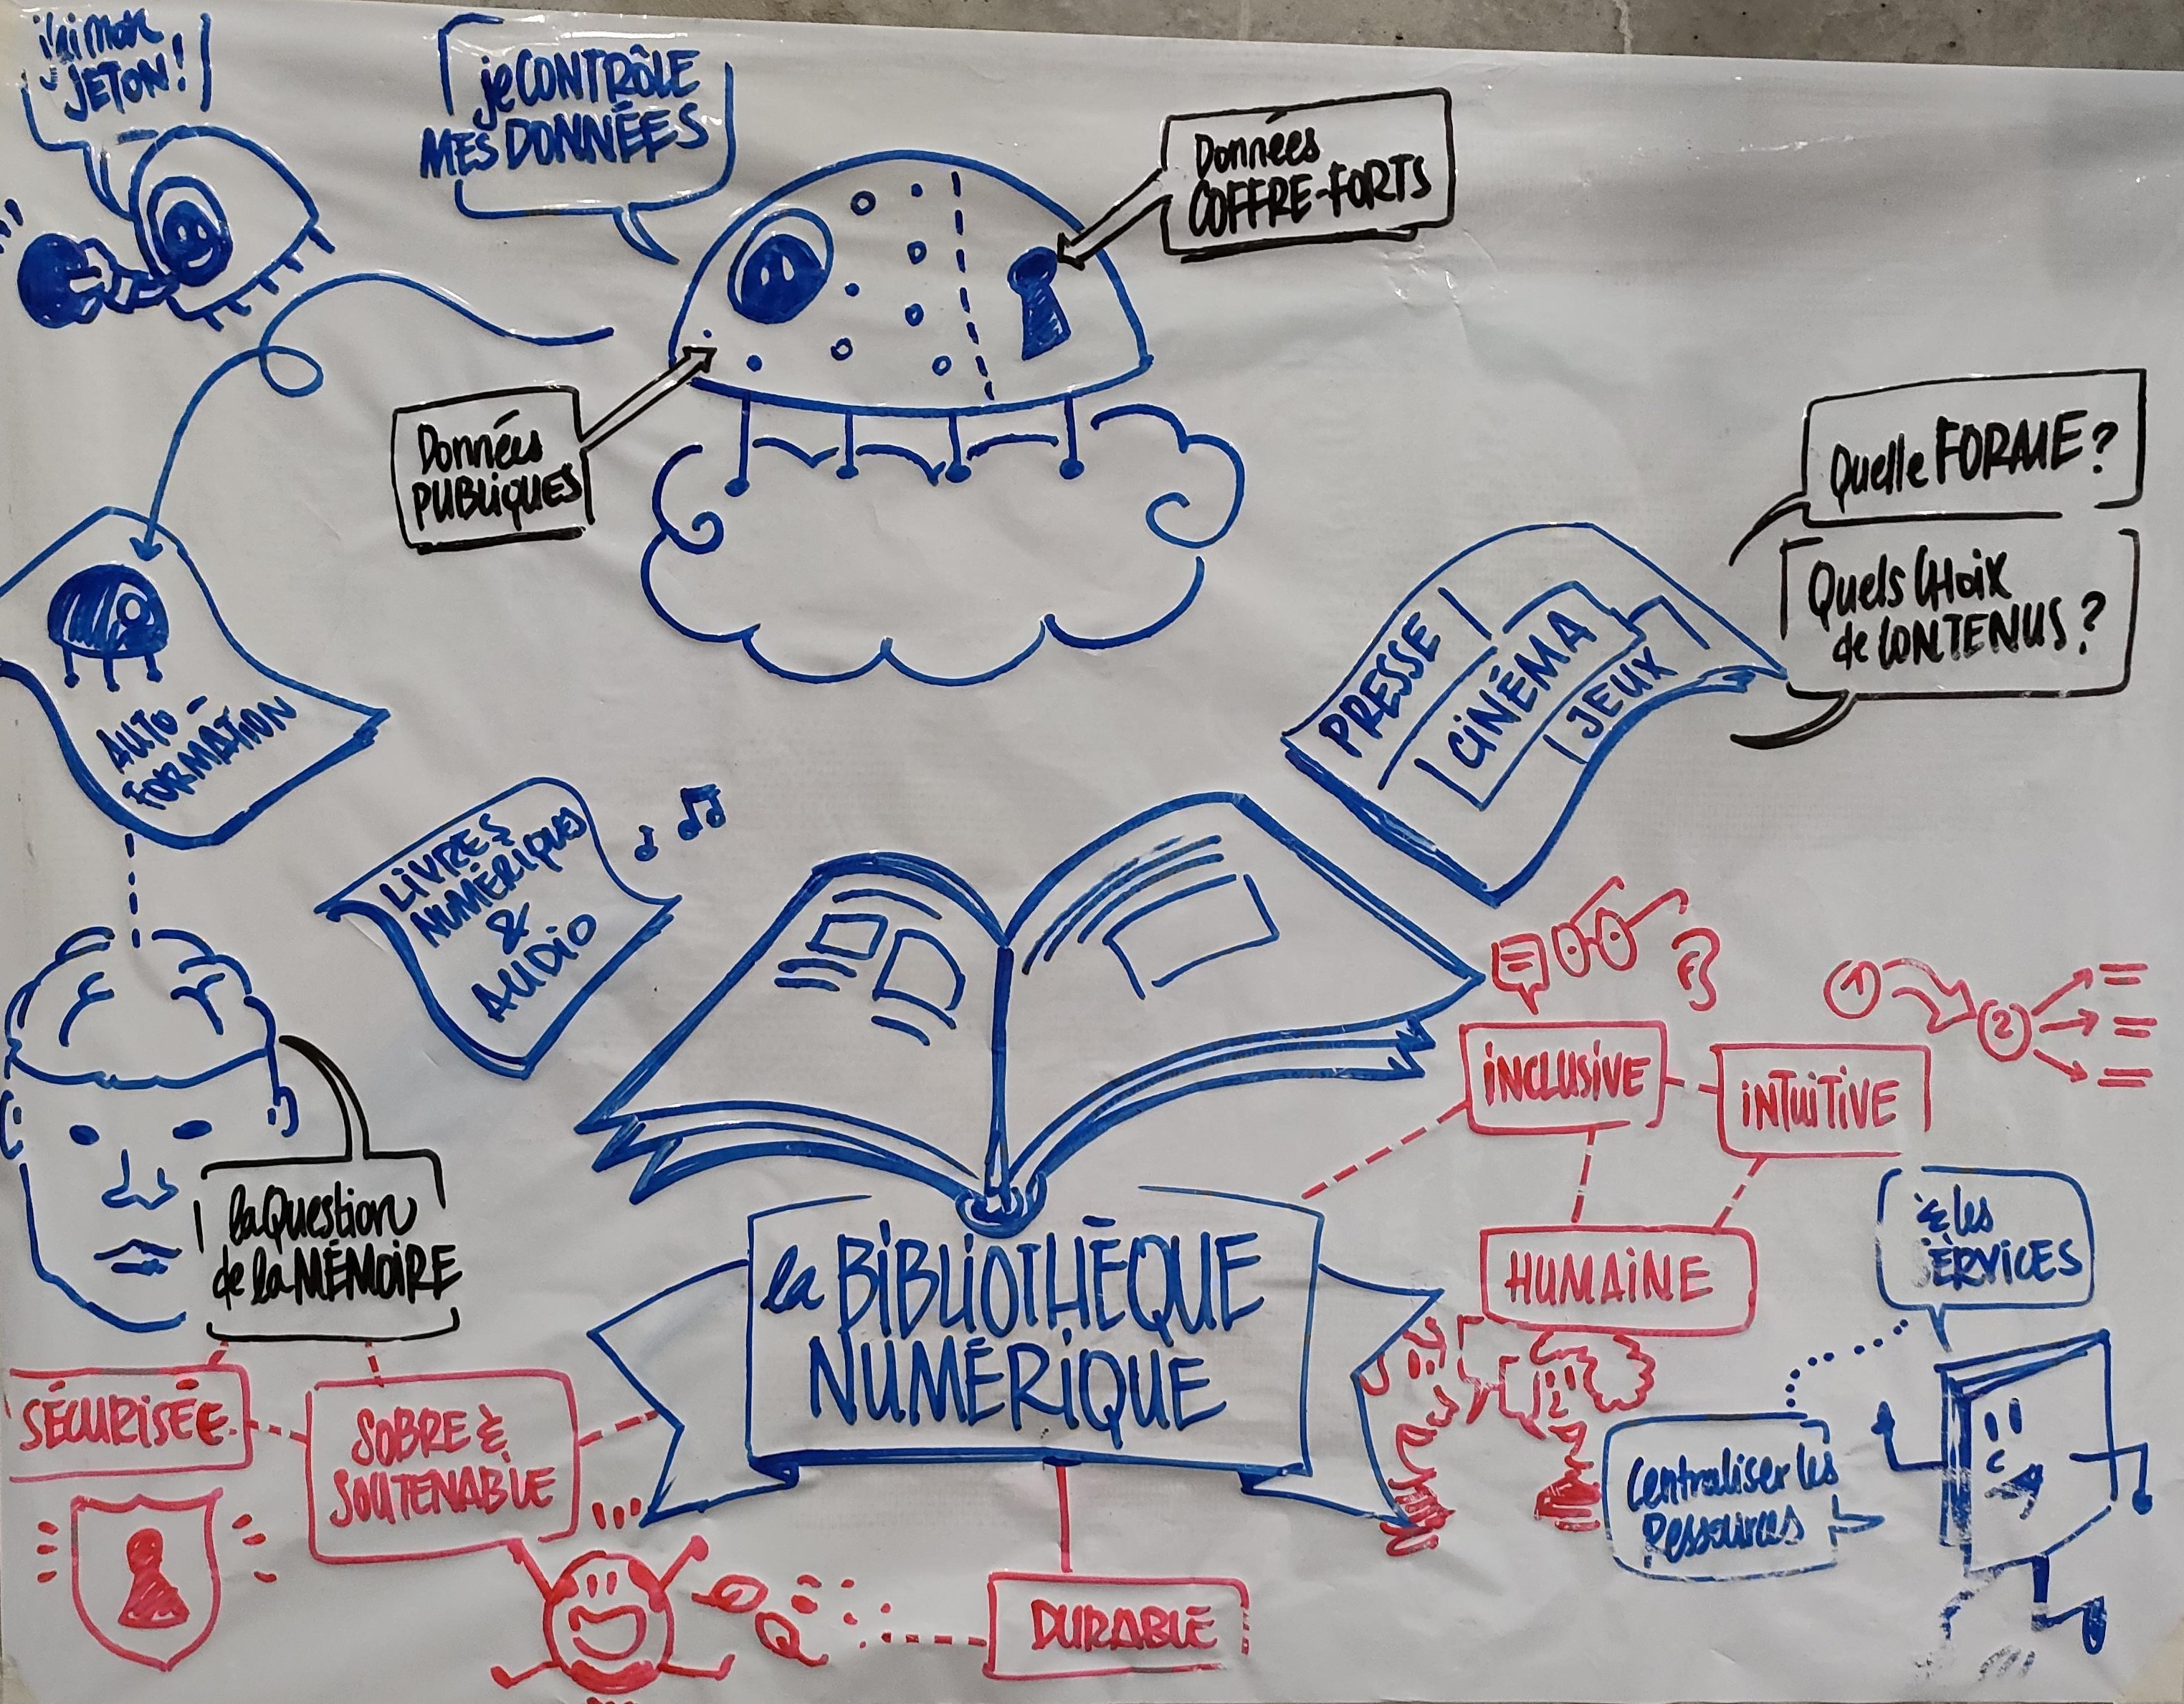 j'ai mon
JETON!
je CONTRÔLE
MES DONNÉES
Données
COFFRE-FORTS
Données
PUBLIQUES
Quelle FORME?
Quels CHOIX
de CONTENUS?
PRESSE
CINÉMA
JEUX
AUTO-
FORMATION
LIVRES
NUMÉRIQUES
&
AUDIO
INCLUSIVE
1
2
INTUITIVE
HUMAINE
la Question
de la MÉMOIRE
la BIBLIOTHÈQUE
NUMÉRIQUE
& les
SERVICES
Centraliser les
Ressources
SÉCURISÉE
SOBRE &
SOUTENABLE
DURABLE